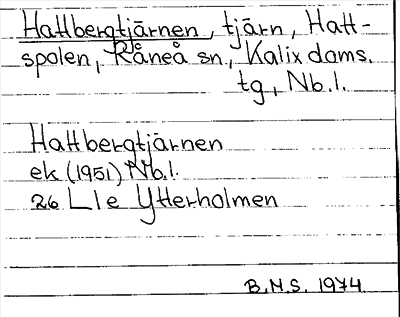 Hattbergtjärnen, tjärn, Hatt-
spolen, Råneå sn., Kalix doms.
tg, Nb.l.
Hattbergtjärnen
ek (1951) Nb.l.
26 L1e Ytterholmen
B.N.S. 1974